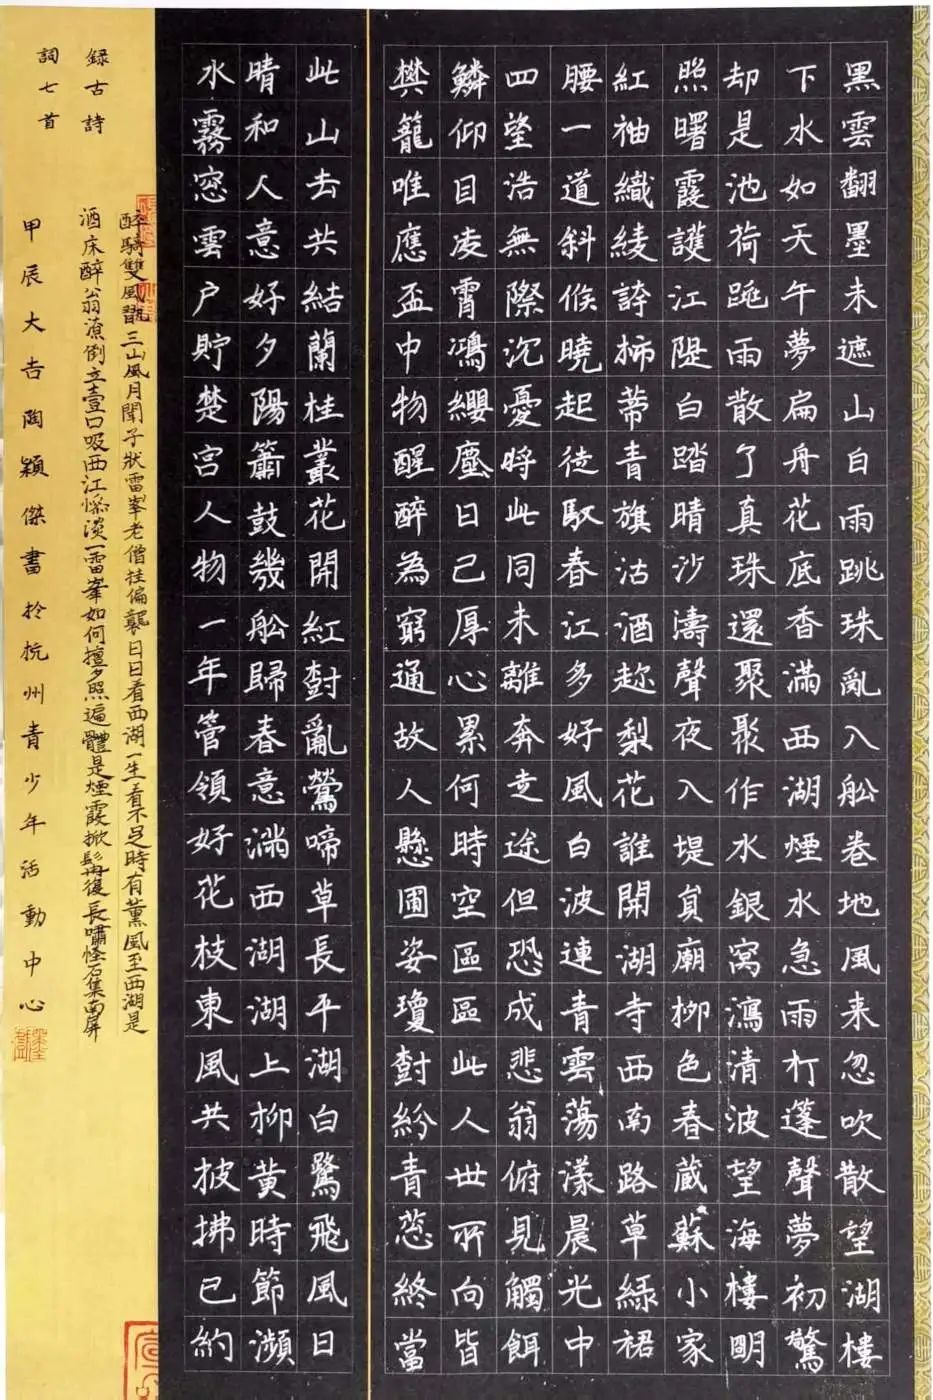 黑雲翻墨未遮山白雨跳珠亂入船卷地風来忽吹散望湖樓
下水如天午夢扁舟花底香滿西湖煙水急雨打蓬聲夢初驚
却是池荷跳雨散了真珠還聚聚作水銀窩瀉清波望海樓明
照曙霞護江隄白踏晴沙濤聲夜入堤負廟柳色春藏蘇小家
紅袖織綾誇柿蒂青旗沽酒趂梨花誰開湖寺西南路草綠裙
腰一道斜候曉起徒馭春江多好風白波連青雲蕩漾晨光中
四望浩無際沉憂將此同未離奔走途但恐成悲翁俯見觸餌
鱗仰目凌霄鴻纓塵日已厚心累何時空區區此人世所向皆
樊籠唯應盃中物醒醉為窮通故人懸圃姿瓊對紛青蕊終當
此山去共結蘭桂叢花開紅對亂鶯啼草長平湖白鷺飛風日
晴和人意好夕陽簫鼓幾船歸春意滿西湖湖上柳黃時節瀕
水霧窓雲户貯楚宮人物一年管領好花枝東風共披拂已約
醉騎雙鳳翫三山風月聞子狀雷峯老僧挂偏襲日日看西湖一生看不足時有薰風至西湖是
酒床醉翁潦倒立壹口吸西江慘淡一雷峯如何擅夕照遍體是煙霞掀髯復長嘯怪石集南屏
録古詩
詞七首
甲辰大吉陶穎傑書於杭州青少年活動中心